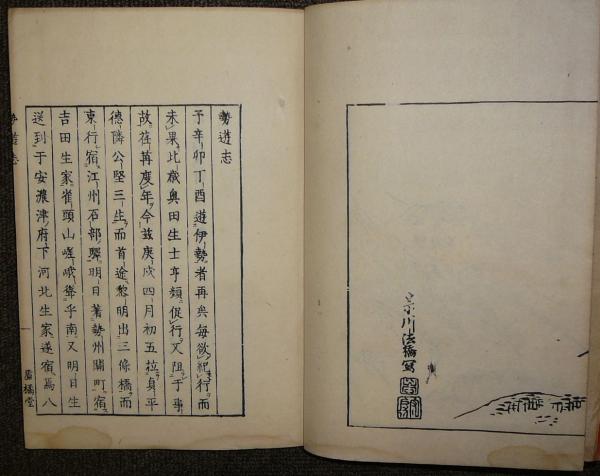 川法橋寫
勢遊志
予辛卯丁酉遊伊勢者再矣每欲紀行而
未果比歲奥田生士亨頻促行又阻于事
故荏苒度年今茲庚戌四月初五拉身平
德隣公堅三生而首途黎明出三條橋而
東行宿江州石部驛明日著勢州關町宿
吉田生家雀頭山嵯峨聳乎南又明日生
送到于安濃津府下河北生家遂宿焉八
勢遊志
一
橘堂